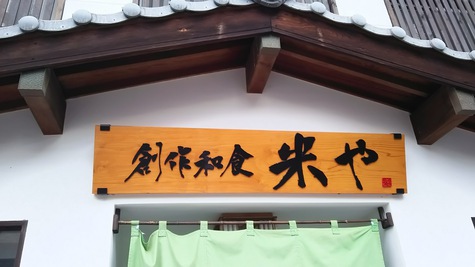 創作和食 米や